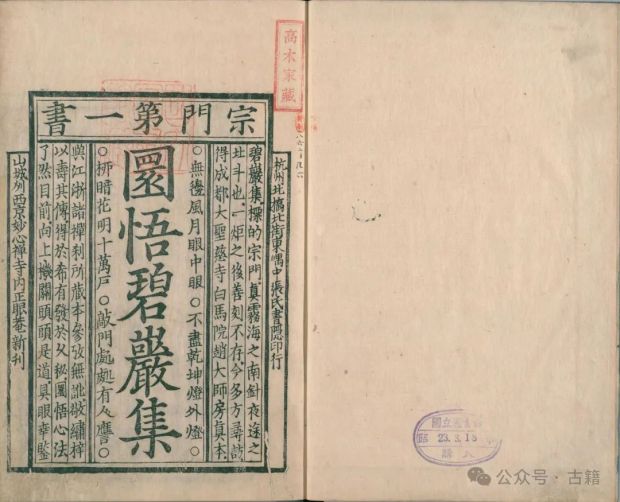 高木家藏
宗門第一書
杭州北橋北街東嵎中張氏書隱印行
碧巖集標的宗門眞霧海之南針夜途之
北斗也一炬之後善刻不存今多方尋訪
得成都大聖慈寺白馬院趙大師房眞本
○無邊風月眼中眼○不盡乾坤燈外燈○
圜悟碧巖集
○柳暗花明十萬戶○敲門處處有人應○
與江浙諸禪刹所藏本參攷無訛敬繡梓
以壽其傳得於希有發於久秘圜悟心法
了然目前向上機關頭頭是道具眼幸鑒
山城州西京妙心禪寺内正眼菴新刊
國立
23.3.18
購入
公众号 · 古籍